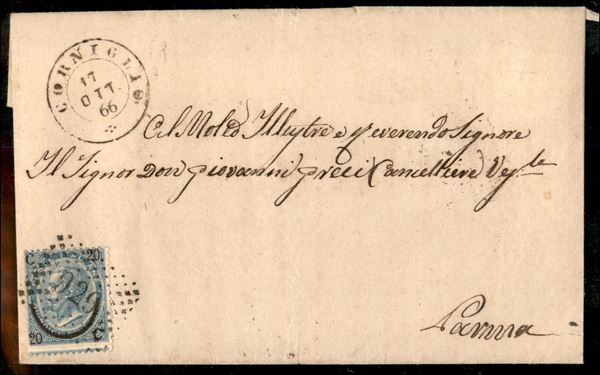 CORNIGLIO
17
OTT.
66
Al Molto Illustre e Reverendo Signore
Il Signor Don Giovanni Cancelliere
C 20
20 C
Parma